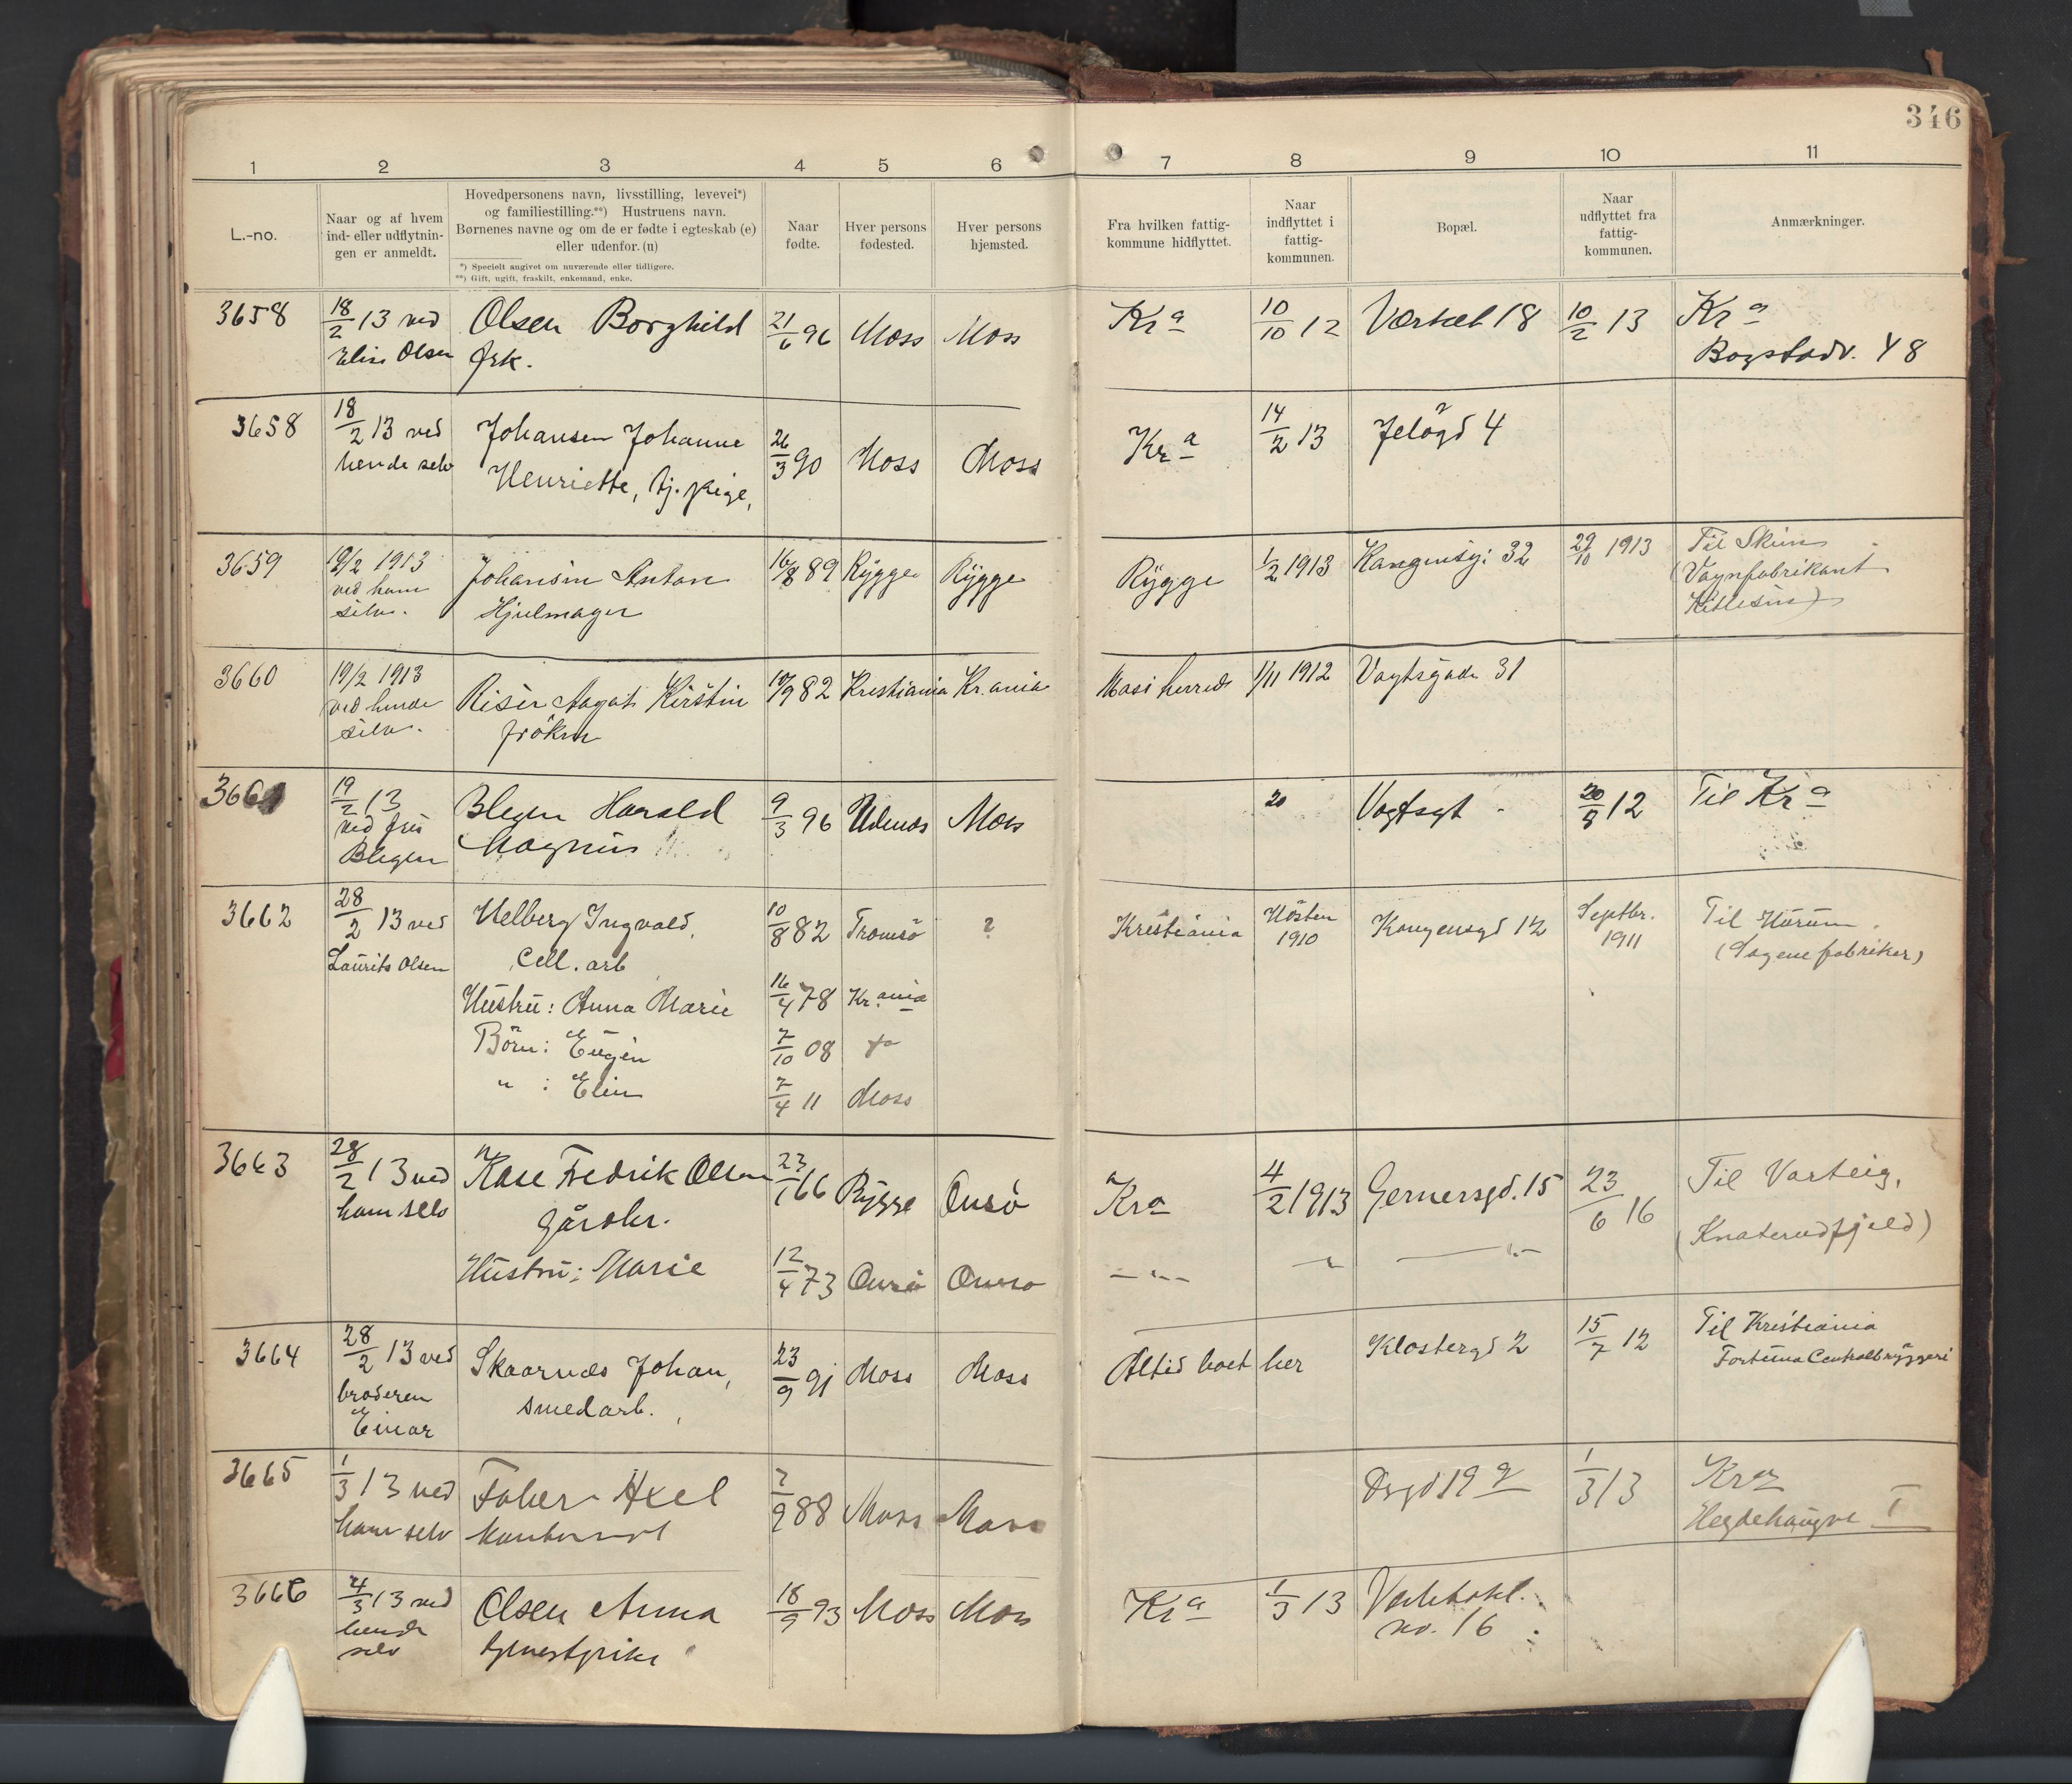 346
1 2 3 4 5 6 7 8 9 10 11
L.-no.
Naar og af hvem
ind- eller udflytnin-
gen er anmeldt.
Hovedpersonens navn, livsstilling, levevei*)
og familiestilling.**) Hustruens navn.
Børnenes navne og om de er fødte i egteskab (e)
eller udenfor. (u)
*) Specielt angivet om nuværende eller tidligere.
**) Gift, ugift, fraskilt, enkemand, enke.
Naar
fødte.
Hver persons
fødested.
Hver persons
hjemsted.
Fra hvilken fattig-
kommune hidflyttet.
Naar
indflyttet i
fattig-
kommunen.
Bopæl.
Naar
udflyttet fra
fattig-
kommunen.
Anmærkninger.
3658 18/2 13 ved Olsen Borghild 21/6 96 Moss Moss Kra 10/10 12 Værket 18 10/2 13 Kra
Elise Olsen frk. Bogstadv. 48
3658 18/2 13 ved Johansen Johanne 26/3 90 Moss Moss Kra 14/2 13 Jeløgd 4
hende selv Henriette, tj.pige,
3659 19/2 1913 Johansen Anton 16/8 89 Rygge Rygge Rygge 1/2 1913 Kongensg: 32 29/10 1913 Til Skien
ved ham Hjulmager (Vognfabrikant
selv. Kittelsen)
3660 19/2 1913 Riser Aagot Kirstin 10/9 82 Kristiania Kr.ania Moss herred 1/11 1912 Vogtsgade 31
ved hende frøken
selv.
366 19/2 13 Blegen Harald 9/3 96 Udenæs Moss 20 Vogtsgt - 20/8 12 Til Kra
ved fru Magnus
Blegen
3662 28/2 13 ved Helberg Ingvald, 10/8 82 Tromsö ? Kristiania Hösten 1910 Kongensgd 12 Septbr. 1911 Til Hurum
Laurits Olsen Cell. arb (Sagene fabriker)
Hustru: Anna Marie 16/4 78 Kr.ania
Börn: Eugen 7/10 08
" : Elin 7/4 11 Moss
3663 28/2 13 ved Kase Fredrik Olsen 23/1 66 Rygge Onsö Kra 4/2 1913 Gernersgd. 15 23/6 16 Til Varteig,
ham selv gårdbr. (Knaterudfjeld)
Hustru: Marie 12/4 73 Onsö Onso — " — " — " —
3664 28/2 13 ved Skaarnæs Johan, 23/9 91 Moss Moss Altid boet her Klostergd 2 15/7 12 Til Kristiania
broderen smedarb. Fortuna Centralbryggeri
Einar
3665 1/3 13 ved Axel 88 Moss Moss 1/3 13 Kra
ham selv Hegdehaugve I
3666 4/3 13 ved Olsen Anna 18/9 93 Moss Moss Kra 1/3 13
hende tjenestepike no. 16
selv